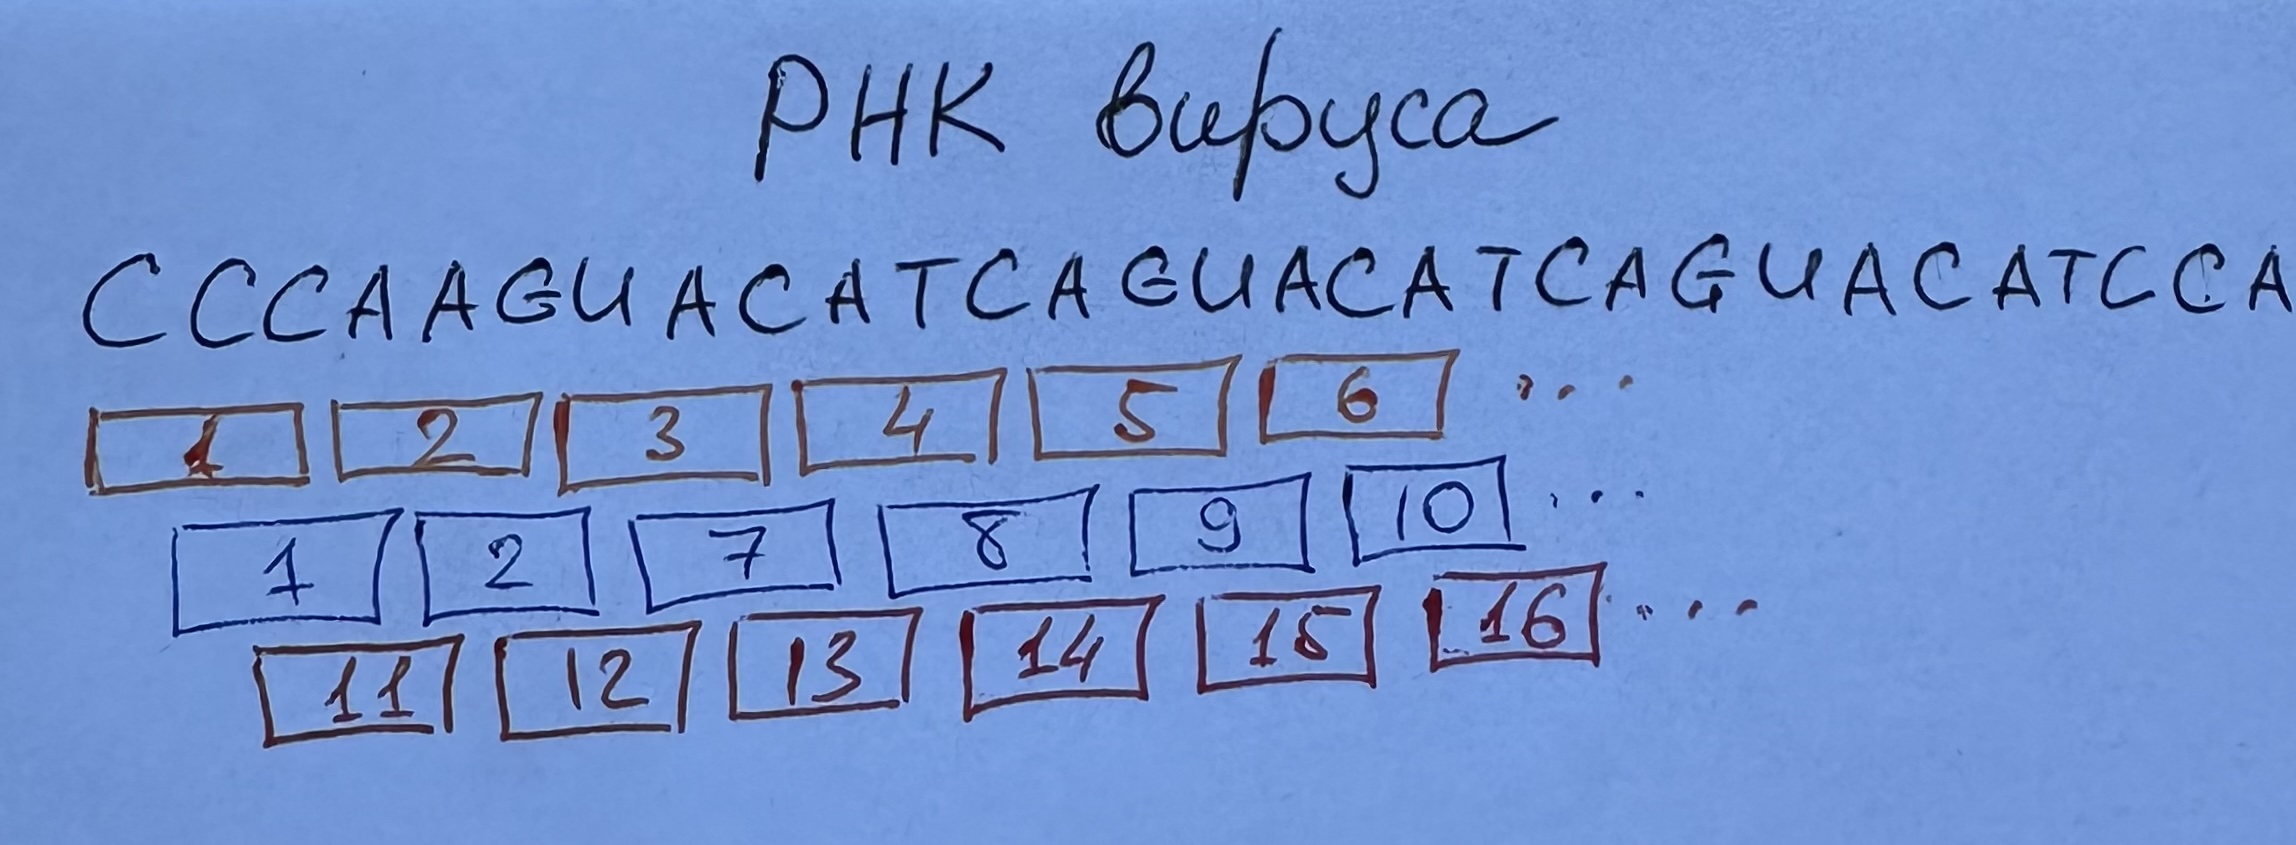 РНК вируса
CCCAAGUACATCAGUACATCAGUACATCCA
1 2 3 4 5 6 ...
1 2 7 8 9 10 ...
11 12 13 14 15 16 ...